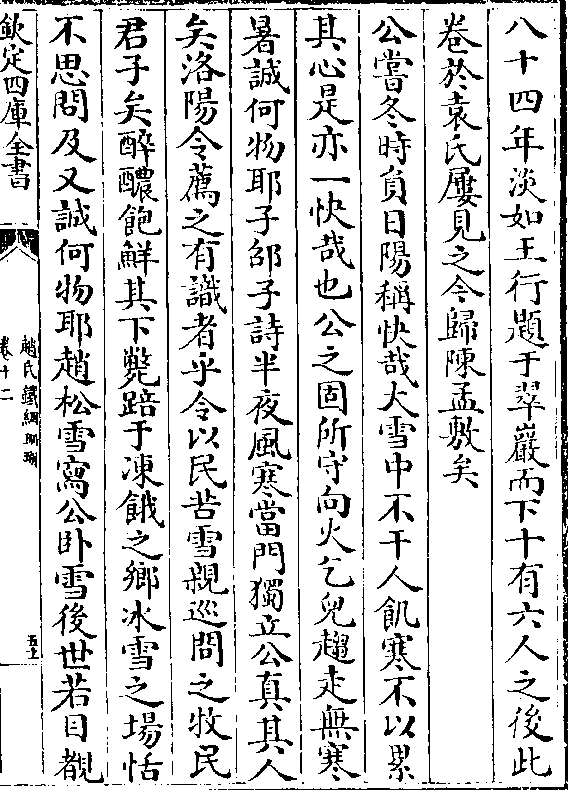 八十四年淡如王行題于翠巖而下十有六人之後此
卷於袁氏屢見之今歸陳孟敷矣
公嘗冬時負日陽稱快哉大雪中不干人飢寒不以累
其心是亦一快哉也公之固所守向火乞兒趨走無寒
暑誠何物耶子邵子詩半夜風寒當門獨立公真其人
矣洛陽令薦之有識者乎令以民苦雪親巡問之牧民
君子矣醉醲飽鮮其下斃踣于凍餓之鄉冰雪之場恬
不思問及又誠何物耶趙松雪寫公卧雪後世若目覩
欽定四庫全書
趙氏鐵網珊瑚
卷十二